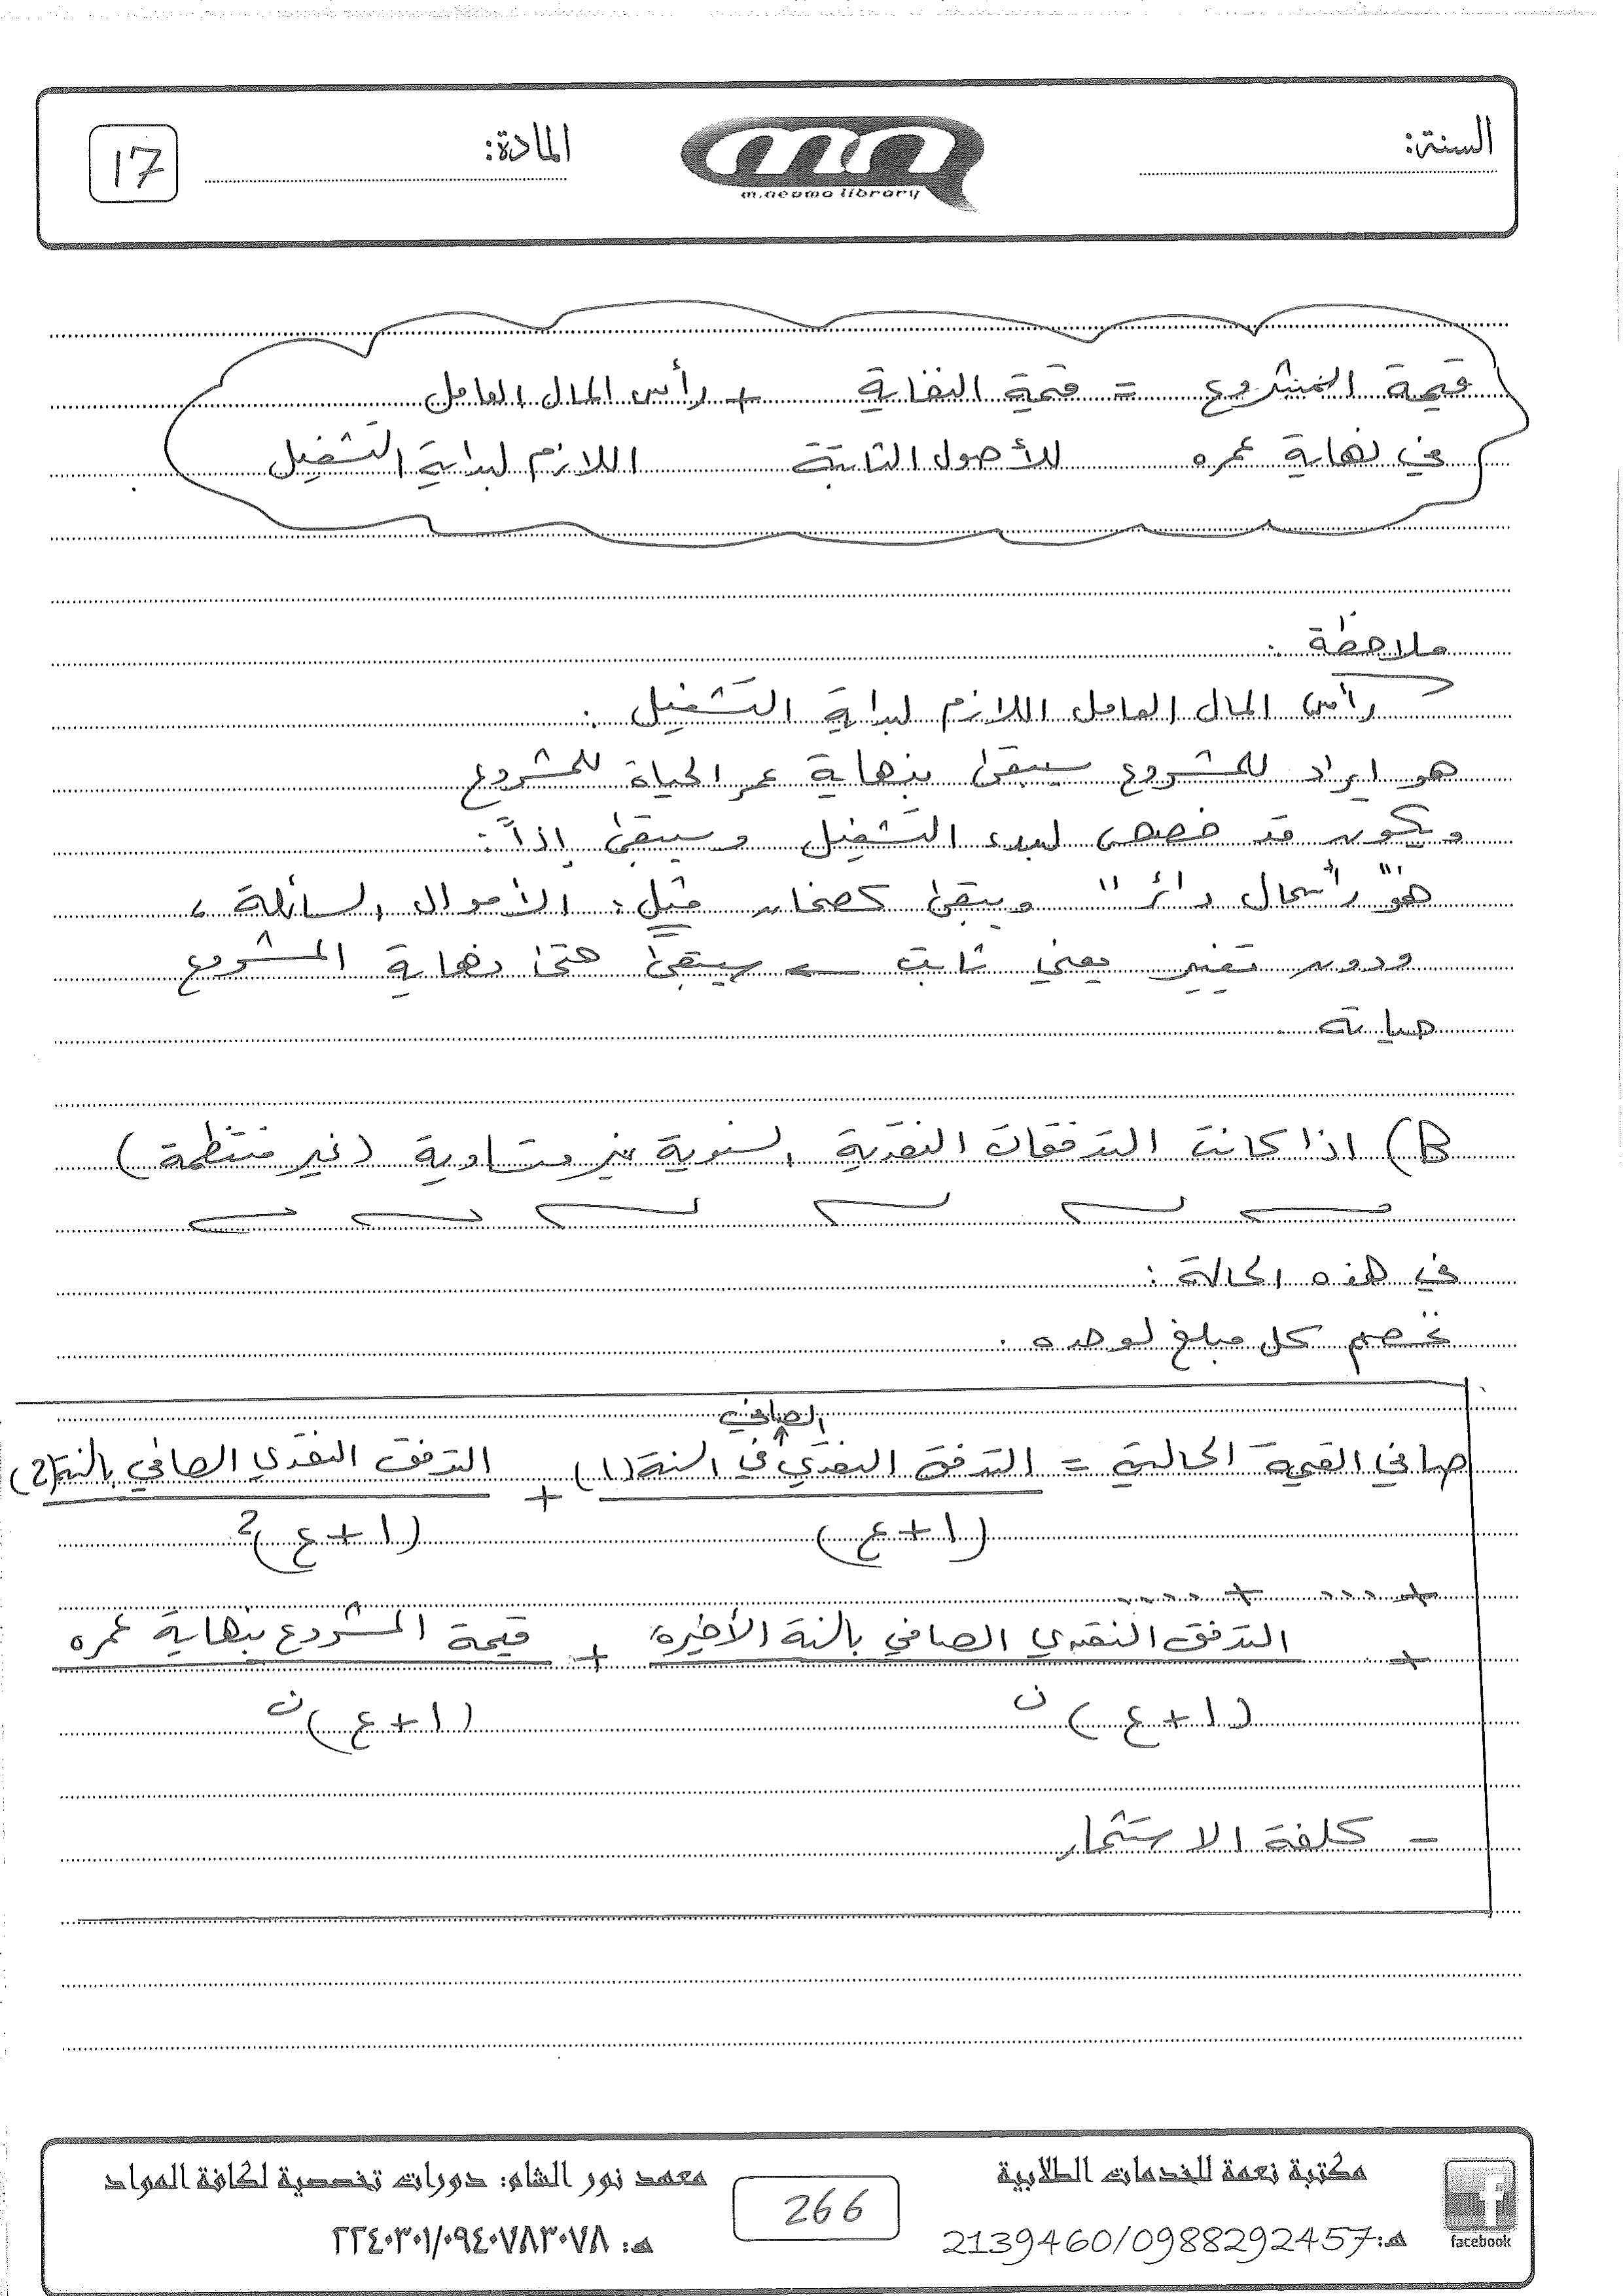 السنة:
المادة:
17
m.neoma library
قيمة المشروع = قيمة النفاية + رأس المال العامل
في نهاية عمره للأصول الثابتة اللازم لبداية التشغيل
ملاحظة:
رأس المال العامل اللازم لبداية التشغيل:
هو ايراد للمشروع سيبقى بنهاية عمر الحياة للمشروع
ويكون قد خصص لبدء التشغيل وسيبقى إذاً:
هو "رأسمال دائر" ويبقى كضمان مثل: الأموال السائلة،
ودون تغيير يعني ثابت ← سيبقى حتى نهاية المشروع
حياته
B) اذا كانت التدفقات النقدية السنوية غير متساوية (غير منتظمة)
في هذه الحالة:
نخصم كل مبلغ لوحده.
صافي القيمة الحالية = التدفق النقدي الصافي في السنة (1) + التدفق النقدي الصافي بالسنة (2)
(1+ع) (1+ع)2
+ .... + ....
+ التدفق النقدي الصافي بالسنة الأخيرة + قيمة المشروع بنهاية عمره
(1+ع)ن (1+ع)ن
- كلفة الاستثمار
مكتبة نعمة للخدمات الطلابية
هـ: 2139460/0988292457
facebook
266
معهد نور الشام: دورات تخصصية لكافة المواد
هـ: ٢٢٤٠٣٠١/٠٩٤٠٧٨٣٠٧٨